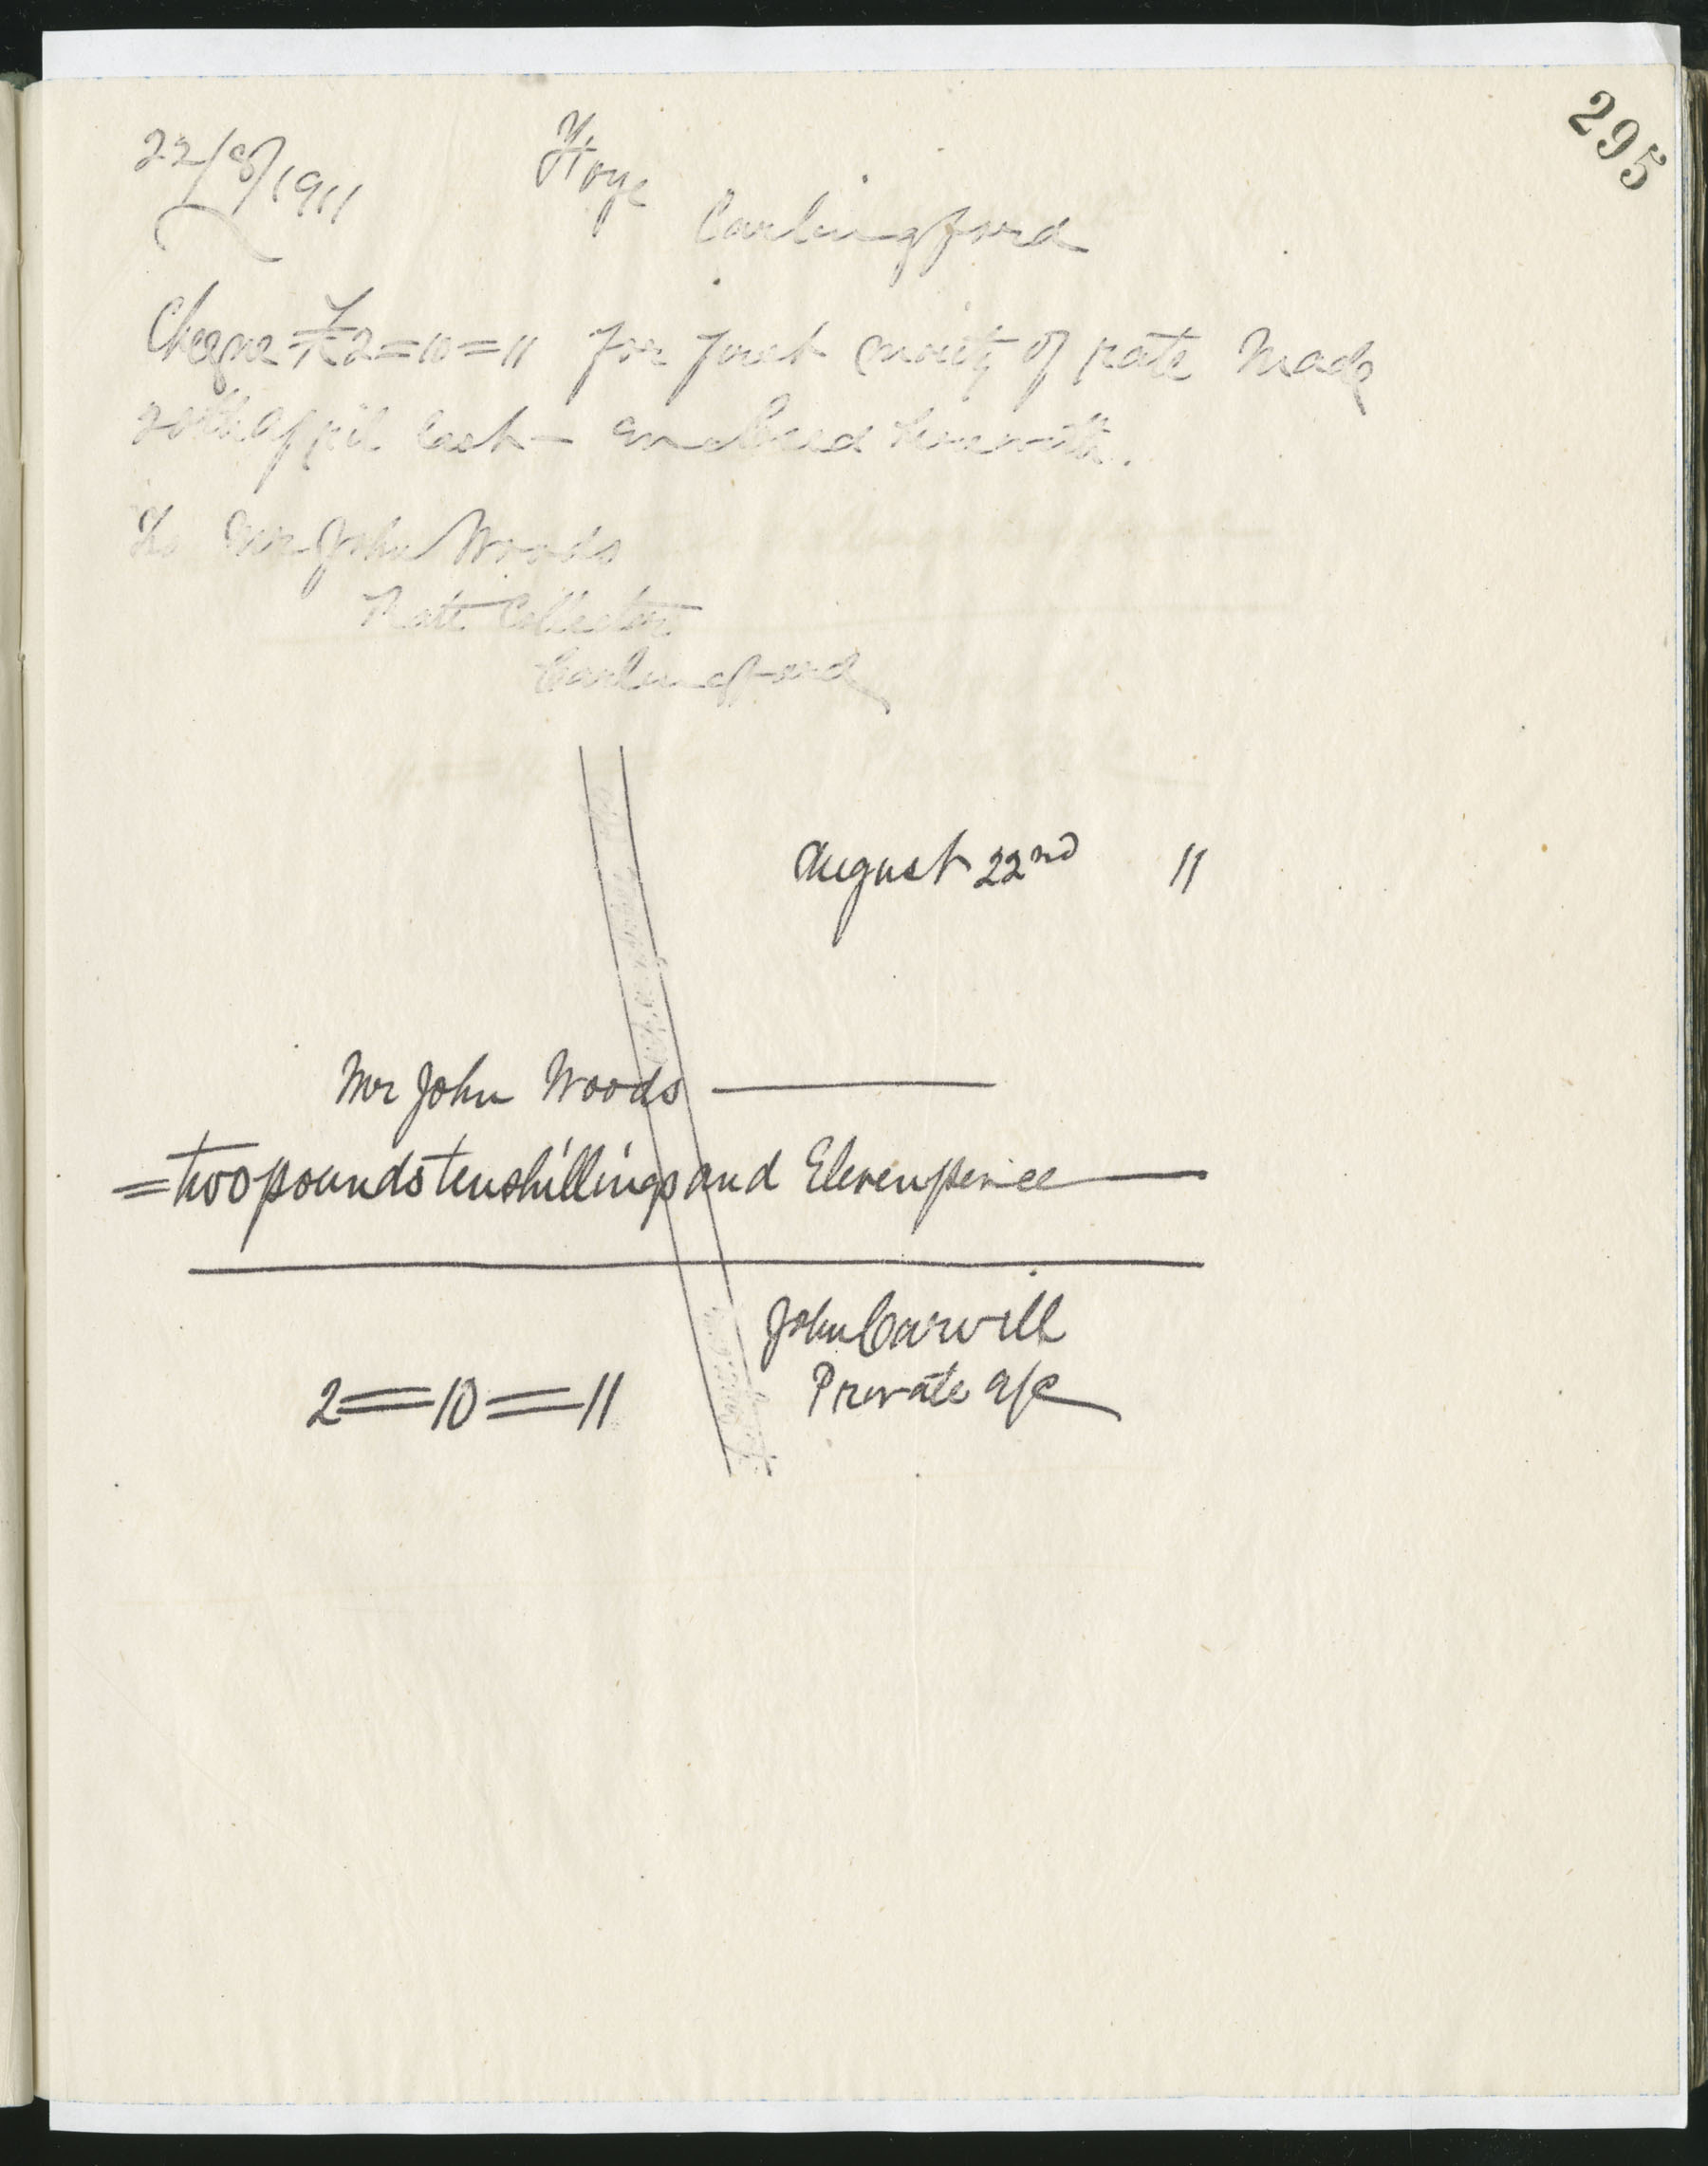 295
22/8/1911
Carlingford
Cheque £2=10=11 for first moiety of rate made
20th April last — enclosed herewith.
To Mr John Woods
Rate Collector
Carlingford
August 22nd 11
Mr John Woods
=two pounds ten shillings and Eleven pence
John Carvill
Private a/c
2=10=11